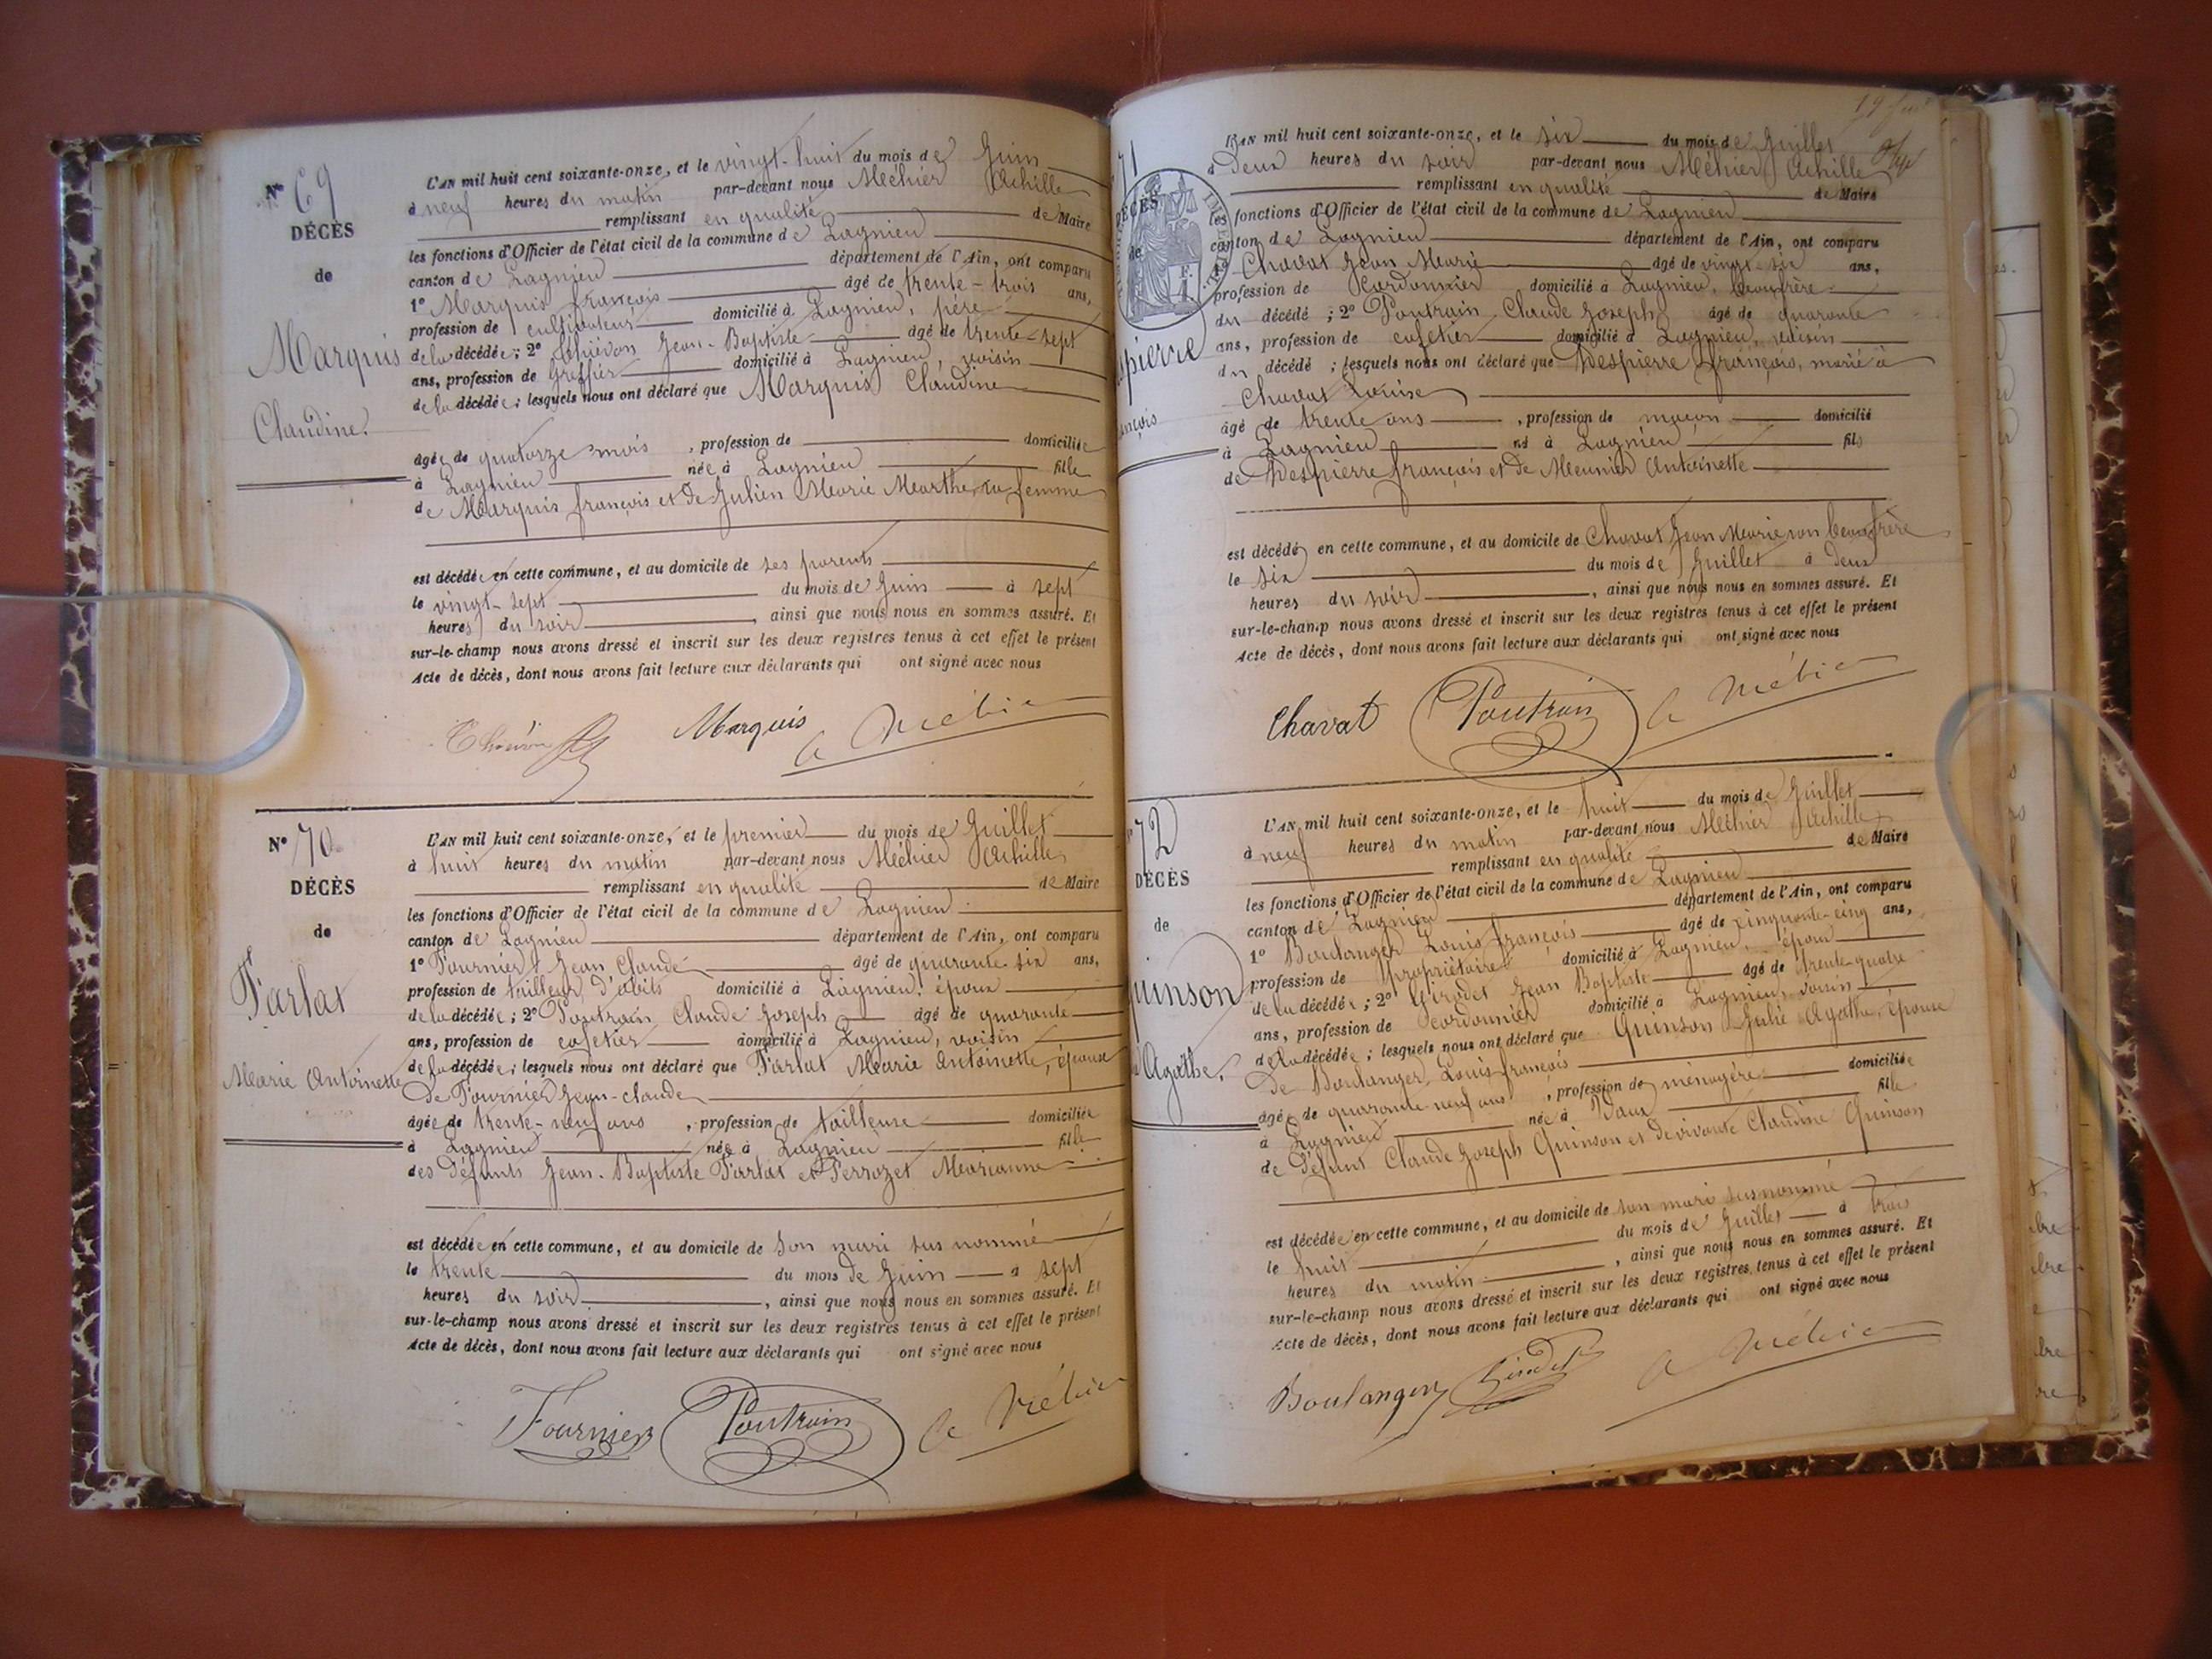 N° 69
DÉCÈS
de
Marquis
Claudine.
L'AN mil huit cent soixante-onze, et le vingt-huit du mois de Juin
à neuf heures du matin par-devant nous Méhier Achille
remplissant en qualité de Maire
les fonctions d'Officier de l'état civil de la commune de Lagnieu
canton de Lagnieu département de l'Ain, ont comparu
1° Marquis françois âgé de trente-trois ans,
profession de cultivateur domicilié à Lagnieu, père
de la décédée; 2° Thiévon Jean-Baptiste âgé de trente-sept
ans, profession de Greffier domicilié à Lagnieu, voisin
de la décédée; lesquels nous ont déclaré que Marquis Claudine
âgée de quatorze mois, profession de domiciliée
à Lagnieu née à Lagnieu fille
de Marquis françois et de Julien Marie Marthe, sa femme
est décédée en cette commune, et au domicile de ses parents
le vingt-sept du mois de Juin à sept
heures du soir, ainsi que nous nous en sommes assuré. Et
sur-le-champ nous avons dressé et inscrit sur les deux registres tenus à cet effet le présent
Acte de décès, dont nous avons fait lecture aux déclarants qui ont signé avec nous
Marquis A Méhier
N° 70
DÉCÈS
de
Farlat
Marie Antoinette
L'AN mil huit cent soixante-onze, et le premier du mois de Juillet
à huit heures du matin par-devant nous Méhier Achille
remplissant en qualité de Maire
les fonctions d'Officier de l'état civil de la commune de Lagnieu
canton de Lagnieu département de l'Ain, ont comparu
1° Fournier Jean Claude âgé de quarante-six ans,
profession de tailleur d'abits domicilié à Lagnieu, époux
de la décédée; 2° Poutrain Claude Joseph âgé de quarante
ans, profession de cafetier domicilié à Lagnieu, voisin
de la décédée; lesquels nous ont déclaré que Farlat Marie Antoinette, épouse
de Fournier Jean-claude
âgée de trente-neuf ans, profession de tailleuse domiciliée
à Lagnieu née à Lagnieu fille
des défunts Jean-Baptiste Farlat et Perrozet Marianne
est décédée en cette commune, et au domicile de son mari sus nommé
le trente du mois de Juin à sept
heures du soir, ainsi que nous nous en sommes assuré. Et
sur-le-champ nous avons dressé et inscrit sur les deux registres tenus à cet effet le présent
Acte de décès, dont nous avons fait lecture aux déclarants qui ont signé avec nous
Fournier Poutrain A Méhier
71
DÉCÈS
de
spierre
ançois
L'AN mil huit cent soixante-onze, et le six du mois de Juillet
à Deux heures du soir par-devant nous Méhier Achille
remplissant en qualité de Maire
les fonctions d'Officier de l'état civil de la commune de Lagnieu
canton de Lagnieu département de l'Ain, ont comparu
1° Chavat Jean Marie âgé de vingt-six ans,
profession de Cordonnier domicilié à Lagnieu, beaufrère
du décédé; 2° Poutrain Claude Joseph âgé de quarante
ans, profession de cafetier domicilié à Lagnieu, voisin
du décédé; lesquels nous ont déclaré que Despierre françois, marié à
Chavat Louise
âgé de trente ans, profession de maçon domicilié
à Lagnieu né à Lagnieu fils
de Despierre françois et de Meunier Antoinette
est décédé en cette commune, et au domicile de Chavat Jean Marie son beaufrère
le six du mois de Juillet à Deux
heures du soir, ainsi que nous nous en sommes assuré. Et
sur-le-champ nous avons dressé et inscrit sur les deux registres tenus à cet effet le présent
Acte de décès, dont nous avons fait lecture aux déclarants qui ont signé avec nous
Chavat Poutrain A Méhier
72
DÉCÈS
de
Quinson
Agathe.
L'AN mil huit cent soixante-onze, et le huit du mois de Juillet
à neuf heures du matin par-devant nous Méhier Achille
remplissant en qualité de Maire
les fonctions d'Officier de l'état civil de la commune de Lagnieu
canton de Lagnieu département de l'Ain, ont comparu
1° Boulanger Louis françois âgé de cinquante-cinq ans,
profession de propriétaire domicilié à Lagnieu, époux
de la décédée; 2° Girodet Jean Baptiste âgé de trente-quatre
ans, profession de cordonnier domicilié à Lagnieu, voisin
de la décédée; lesquels nous ont déclaré que Quinson Julie Agathe, épouse
de Boulanger Louis françois
âgée de quarante-neuf ans, profession de ménagère domiciliée
à Lagnieu née à Vaux fille
de défunt Claude Joseph Quinson et de vivante Claudine Quinson
est décédée en cette commune, et au domicile de son mari susnommé
le huit du mois de Juillet à trois
heures du matin, ainsi que nous nous en sommes assuré. Et
sur-le-champ nous avons dressé et inscrit sur les deux registres tenus à cet effet le présent
Acte de décès, dont nous avons fait lecture aux déclarants qui ont signé avec nous
Boulanger Girodet A Méhier